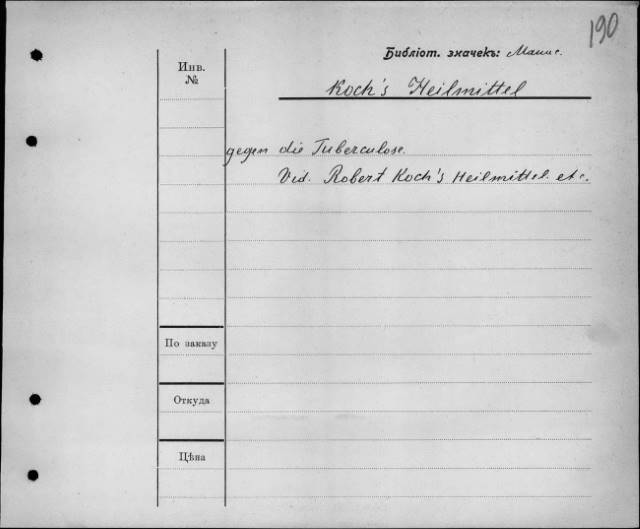 190
Библіот. значекъ: Машис.
Инв.
№
Koch's Heilmittel
gegen die Tuberculose.
Vid. Robert Koch's Heilmittel. etc.
По заказу
Откуда
Цѣна